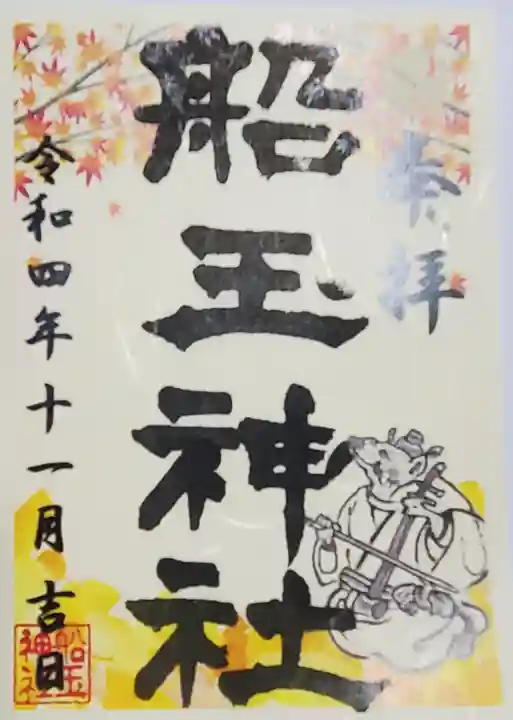 奉拝
船玉神社
令和四年十一月吉日
船玉
神社